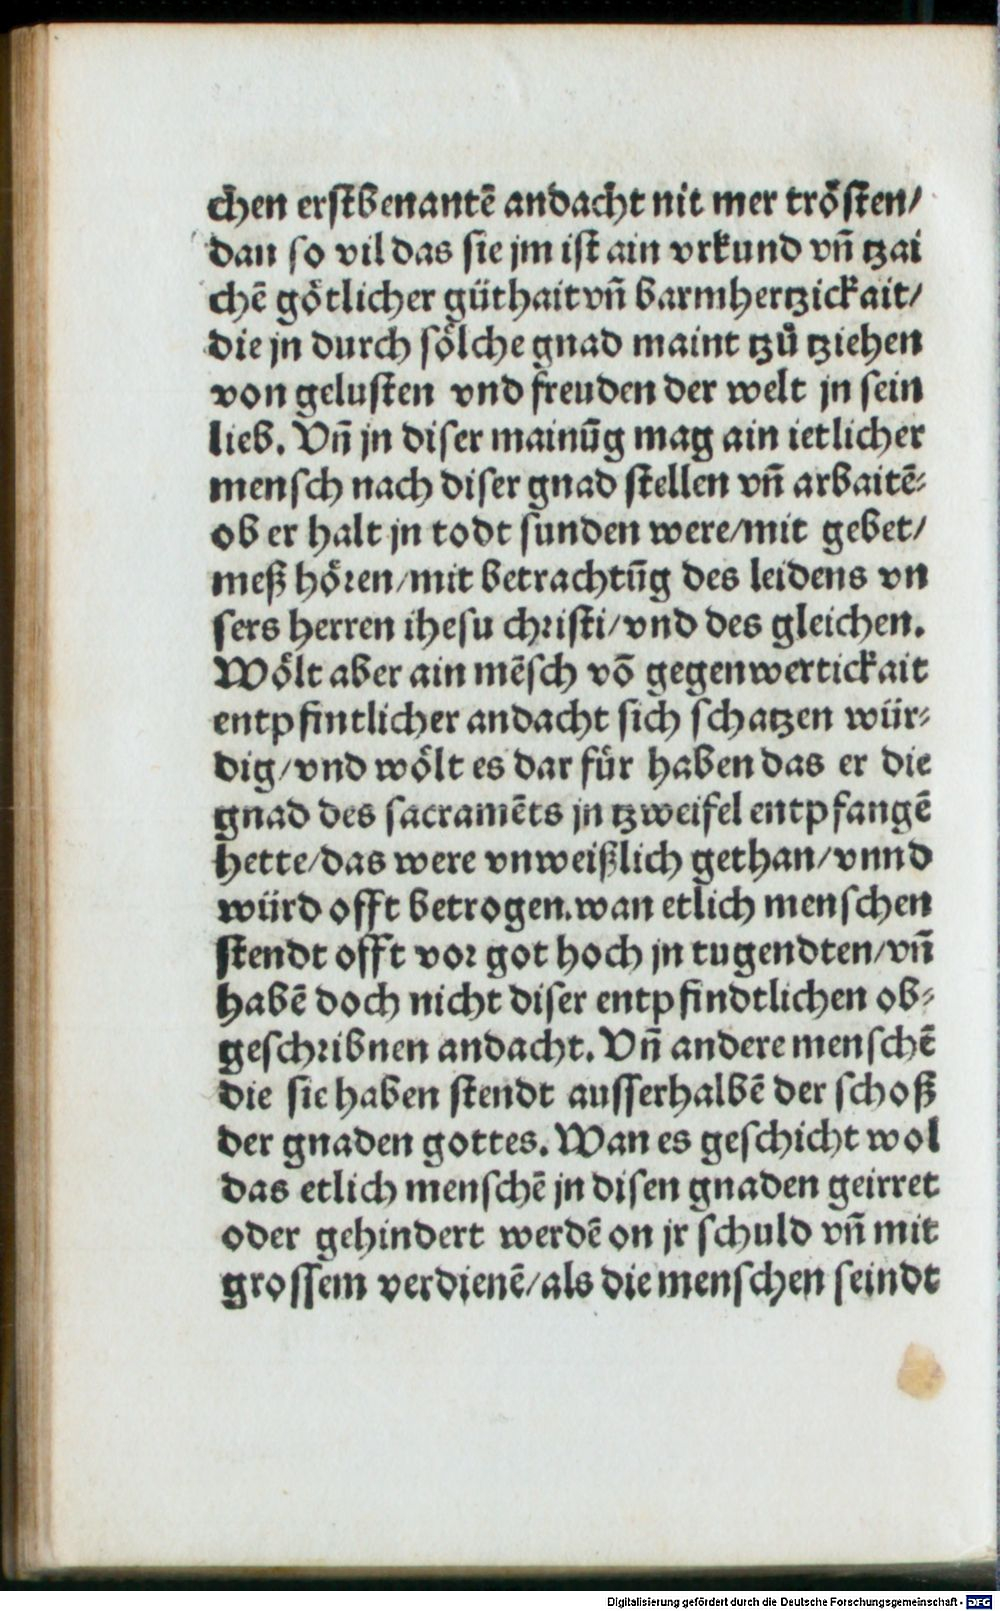 chen erstbenantē andacht nit mer trösten/
dan so vil das sie jm ist ain vrkund vn̄ tzai
chē götlicher güthait vn̄ barmhertzickait/
die jn durch sölche gnad maint tzů tziehen
von gelusten vnd freuden der welt jn sein
lieb. Vn̄ jn diser mainūg mag ain ietlicher
mensch nach diser gnad stellen vn̄ arbaitē⸗
ob er halt jn todt sunden were/mit gebet/
meß hören/mit betrachtūg des leidens vn
sers herren ihesu christi/vnd des gleichen.
Wölt aber ain mēsch vō gegenwertickait
entpfintlicher andacht sich schatzen wür⸗
dig/vnd wölt es dar für haben das er die
gnad des sacramēts jn tzweifel entpfangē
hette/das were vnweißlich gethan/vnnd
würd offt betrogen.wan etlich menschen
stendt offt vor got hoch jn tugendten/vn̄
habē doch nicht diser entpfindtlichen ob⸗
geschribnen andacht. Vn̄ andere menschē
die sie haben stendt ausserhalbē der schoß
der gnaden gottes. Wan es geschicht wol
das etlich menschē jn disen gnaden geirret
oder gehindert werdē on jr schuld vn̄ mit
grossem verdienē/als die menschen seindt
Digitalisierung gefördert durch die Deutsche Forschungsgemeinschaft - DFG